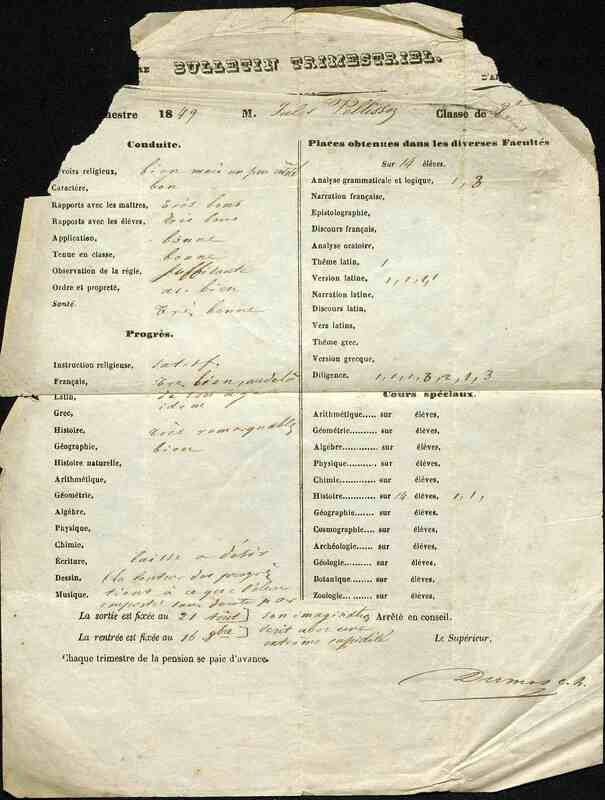 BULLETIN TRIMESTRIEL.
mestre 1849 M. Jules Pellisson Classe de
Conduite.
voirs religieux, bien mais un peu
Caractère, bon
Rapports avec les maîtres, très bons
Rapports avec les élèves, très bons
Application, bonne
Tenue en classe, bonne
Observation de la règle, suffisante
Ordre et propreté, as. bien
Santé très bonne
Progrès.
Instruction religieuse, satisf.
Français, très bien, au delà
Latin, de son âge
Grec, idem
Histoire, très remarquables
Géographie, bien
Histoire naturelle,
Arithmétique,
Géométrie,
Algèbre,
Physique,
Chimie,
Écriture, laisse à désir
Dessin, la lenteur des progrès
Musique. tient à ce que l'élève
emporté sans doute par
La sortie est fixée au 21 août son imagination
La rentrée est fixée au 16 8bre écrit avec une
extrême rapidité
Chaque trimestre de la pension se paie d'avance.
Places obtenues dans les diverses Facultés
Sur 14 élèves.
Analyse grammaticale et logique, 1, 3
Narration française,
Epistolographie,
Discours français,
Analyse oratoire,
Thême latin, 1
Version latine, 1, 1, 1, 1
Narration latine,
Discours latin,
Vers latins,
Thême grec.
Version grecque,
Diligence. 1, 1, 1, 3, 2, 1, 3
Cours spéciaux.
Arithmétique..... sur élèves,
Géométrie.......... sur élèves,
Algèbre.............. sur élèves,
Physique............ sur élèves,
Chimie............... sur élèves,
Histoire............. sur 14 élèves, 1, 1,
Géographie........ sur élèves,
Cosmographie... sur élèves,
Archéologie....... sur élèves,
Géologie............ sur élèves,
Botanique.......... sur élèves,
Zoologie............ sur élèves,
Arrêté en conseil.
Le Supérieur,